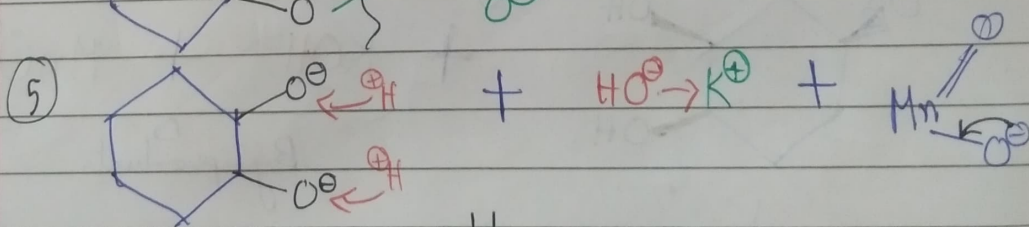 O
⑤ O⊖ ⊕H + HO⊖ → K⊕ + Mn O O⊖
O⊖ ⊕H